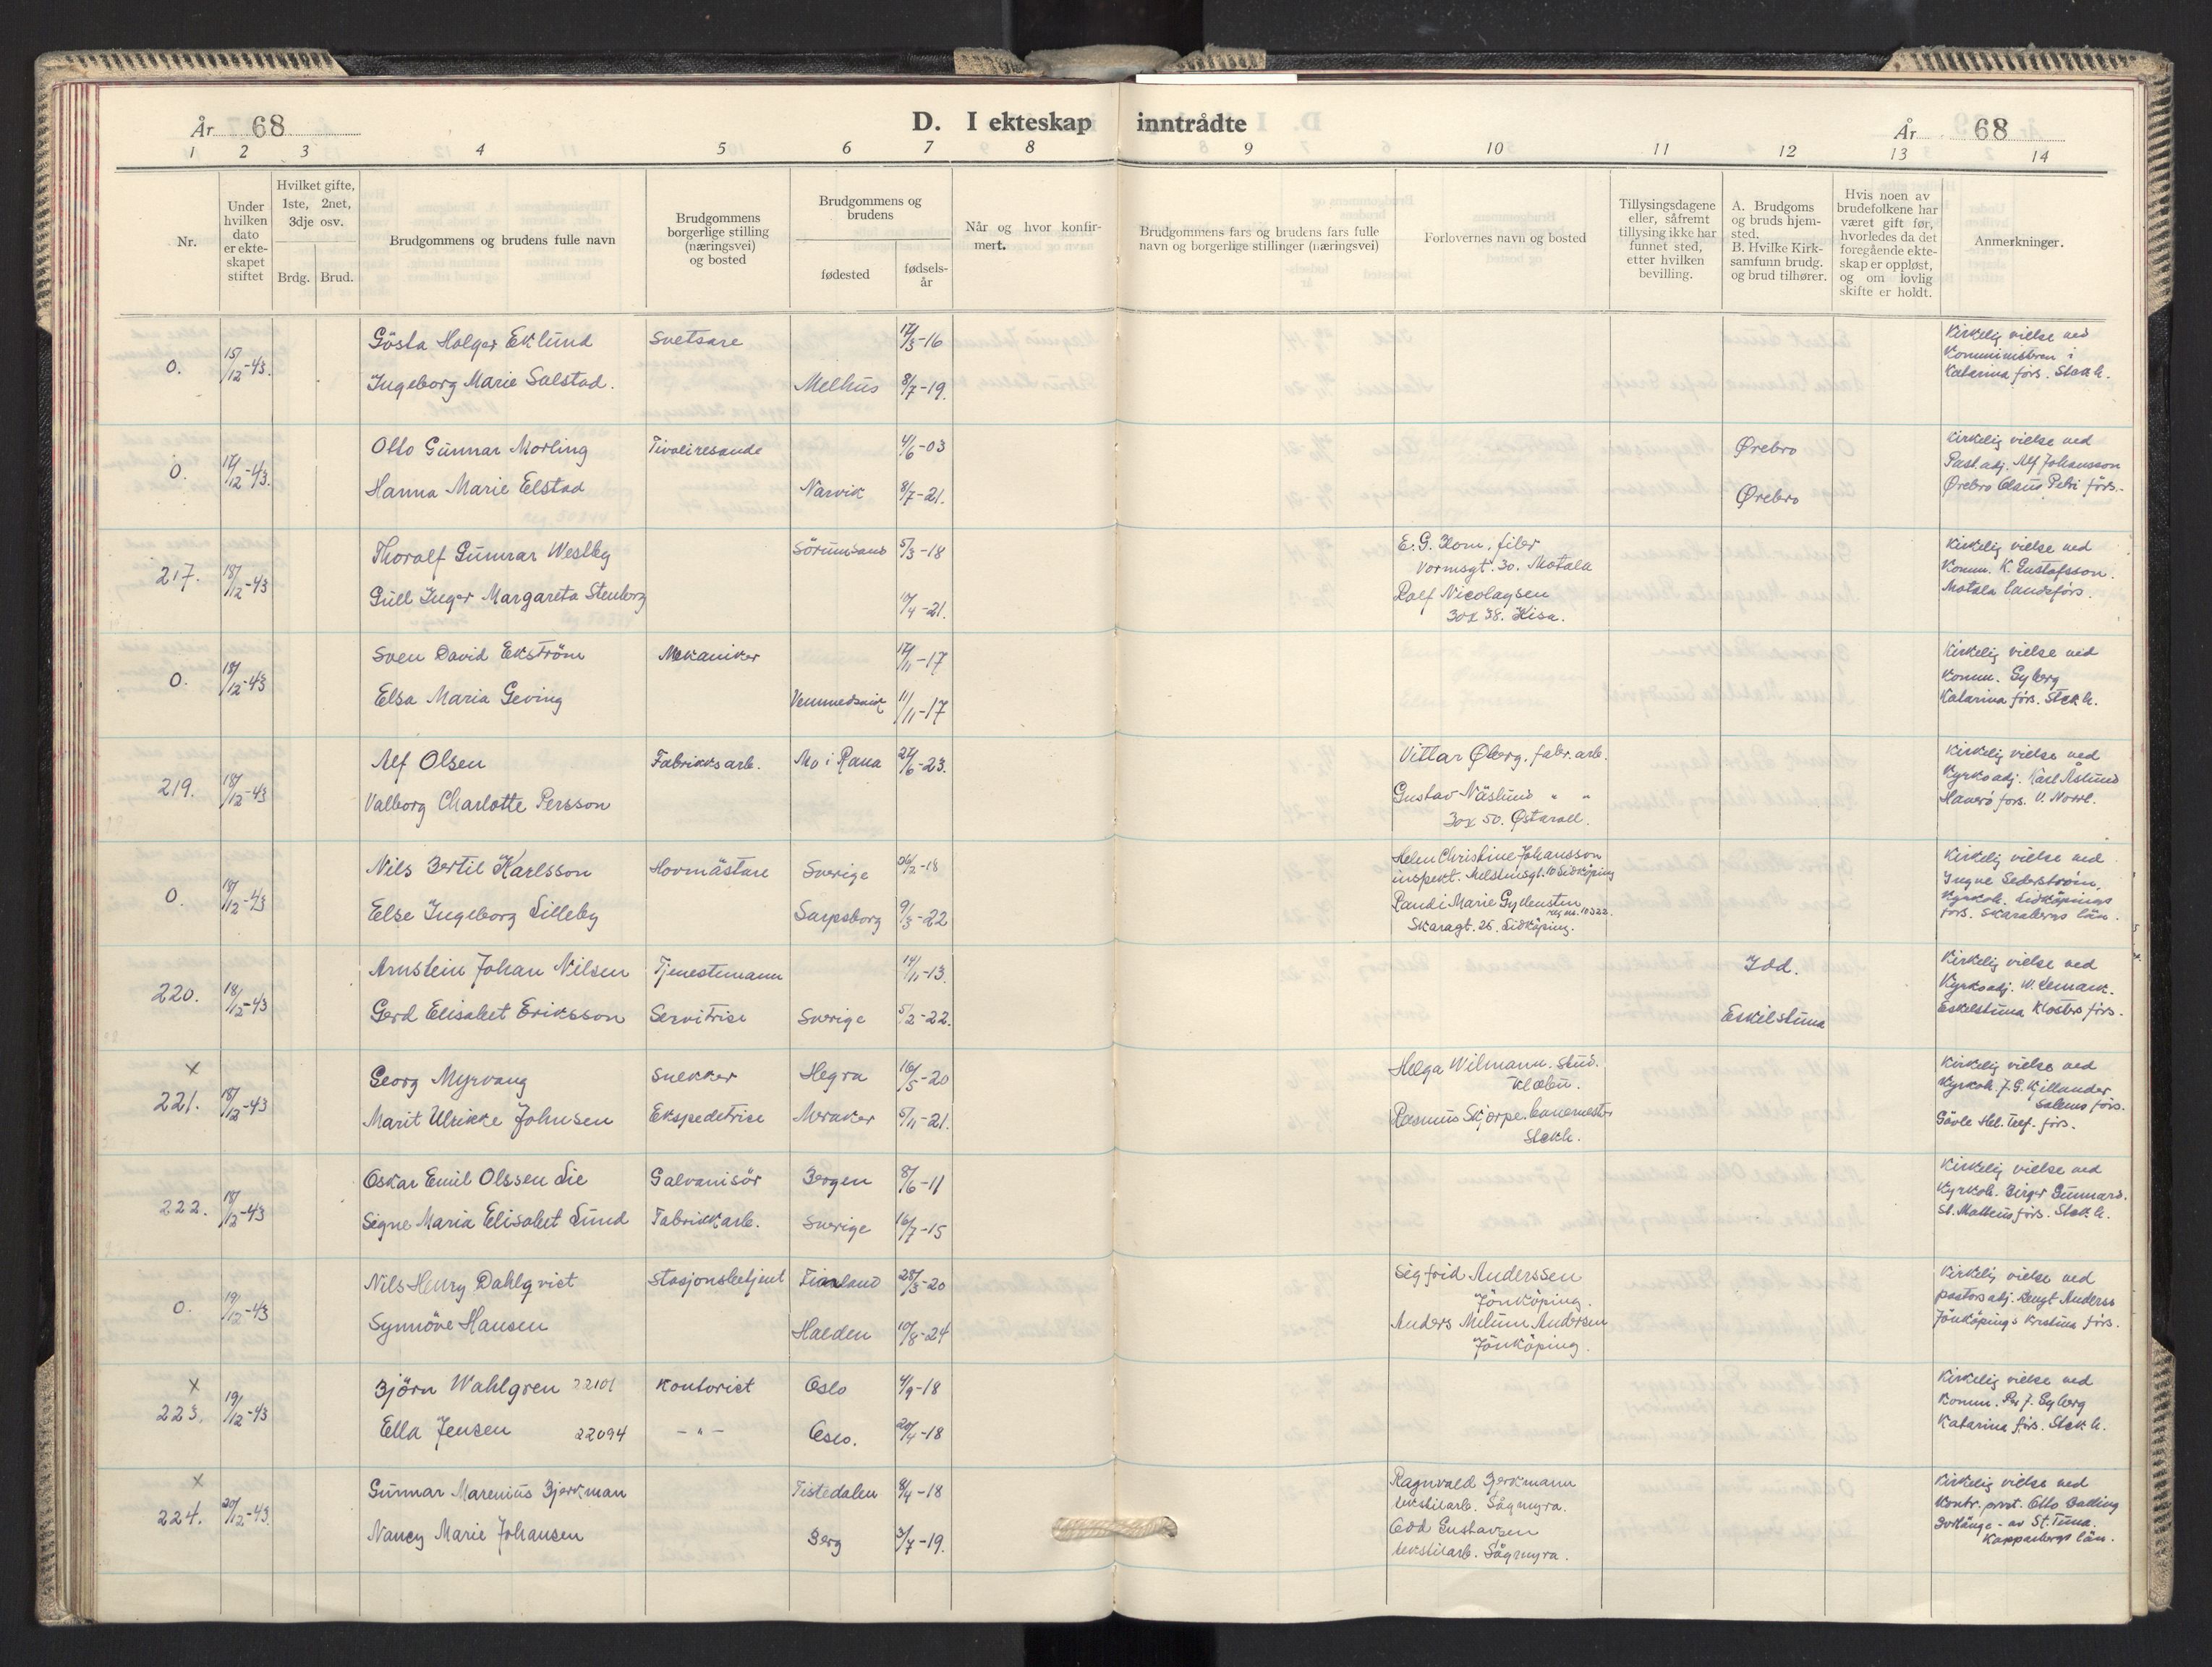 År 68
D. I ekteskap inntrådte
År 68
1 2 3 4 5 6 7 8 9 10 11 12 13 14
Nr.
Under hvilken dato er ekteskapet stiftet
Hvilket gifte, 1ste, 2net, 3dje osv.
Brdg. Brud.
Brudgommens og brudens fulle navn
Brudgommens borgerlige stilling (næringsvei) og bosted
Brudgommens og brudens
fødested
fødselsår
Når og hvor konfirmert.
Brudgommens fars og brudens fars fulle navn og borgerlige stillinger (næringsvei)
Forlovernes navn og bosted
Tillysingsdagene eller, såfremt tillysing ikke har funnet sted, etter hvilken bevilling.
A. Brudgoms og bruds hjemsted.
B. Hvilke Kirksamfunn brudg. og brud tilhører.
Hvis noen av brudefolkene har været gift før, hvorledes da det foregående ekteskap er oppløst, og om lovlig skifte er holdt.
Anmerkninger.
0. 15/12-43.
Gösta Holger Eklund Svetsare 17/3-16
Ingeborg Marie Salstad. Melhus 8/7-19.
Kirkelig vielse ved
Komministern i
Katarina förs. Stockh.
0. 17/12-43.
Otto Gunnar Morling Tivoliresande 4/6-03 Ørebro
Hanna Marie Elstad Narvik 8/7-21. Ørebro
Kirkelig vielse ved
Past. adj. Alf Johansson
Ørebro Olaus Petri förs.
217. 18/12-43
Thoralf Gunnar Westby Sörumsand 5/3-18
Gull Inger Margareta Stenborg 17/4-21.
E. G. Blom, filer
Vormsgt. 30. Motala
Rolf Nicolaysen
Box 38. Kisa.
Kirkelig vielse ved
Komm. K. Gustafsson.
Motala landsförs.
0. 18/12-43
Sven David Ekström Mekaniker 17/11-17
Elsa Maria Geving Vemundvik 11/11-17
Kirkelig vielse ved
Komm. Gyberg
Katarina förs. Stockh.
219. 18/12-43
Alf Olsen Fabrikksarb. Mo i Rana 27/6-23.
Valborg Charlotte Persson
Vittar Øberg. fabr. arb.
Gustav Näslund " "
Box 50. Østavall.
Kirkelig vielse ved
Kyrkoadj. Karl Åslund
Haverö förs. V. Norrl.
0. 18/12-43
Nils Bertil Karlsson Hovmästare Sverige 26/2-18
Else Ingeborg Lilleby Sarpsborg 9/3-22
Helen Christine Johansson
inspekt. 10 Lidköping
Randi Marie Gydensten
reg. nr. 10322.
Skaragt. 25. Lidköping.
Kirkelig vielse ved
Yngve Sederström,
Kyrkoh. Lidköpings
förs. Skaraborgs län.
220. 18/12-43
Arnstein Johan Nilsen Tjenestemann 14/11-13. Idd.
Gerd Elisabet Eriksson Servitrise Sverige 5/2-22. Eskilstuna
Kirkelig vielse ved
Kyrkoadj. W. Lemark.
Eskilstuna Kloster förs.
x
221. 18/12-43
Georg Myrvang Snekker Hegra 16/5-20
Marit Ulrikke Johnsen Ekspeditrise Meraker 5/11-21.
Helga Wilmann. stud.
Klæbu.
Rasmus Skjorpe. banemester
Stockh.
Kirkelig vielse ved
Kyrkoh. J. G. Killander
Salems förs.
Gävle Hel. Tref. förs.
222. 18/12-43
Oskar Emil Olssen Lie Galvanisör Bergen 8/6-11
Signe Maria Elisabet Lund Fabrikkarb. Sverige 16/7-15
Kirkelig vielse ved
Kyrkoh. Birger Gunnars.
St. Matteus förs. Stockh.
0. 19/12-43
Nils Henry Dahlqvist Stasjonsbetjent Finnland 28/3-20
Synnöve Hansen Halden 10/8-24
Sigfrid Anderssen
Jönköping.
Anders Melum Andersen
Jönköping.
Kirkelig vielse ved
pastorsadj. Bengt Anderss
Jönköpings Kristina förs.
x
223. 19/12-43
Björn Wahlgren 22101 Kontorist Oslo 4/9-18
Ella Jensen 22094 - " - Oslo. 20/4-18
Kirkelig vielse ved
Komm. Per J. Gyberg
Katarina förs. Stockh.
x
224. 20/12-43.
Gunnar Marenius Bjerkman Tistedalen 8/4-18
Nancy Marie Johansen Berg 3/7-19.
Ragnvald Bjerkmann
tekstilarb. Sågmyra.
Odd Gustavsen
tekstilarb. Sågmyra.
Kirkelig vielse ved
Kontr. prost. Otto
av St. Tuna.
Kopparbergs län.